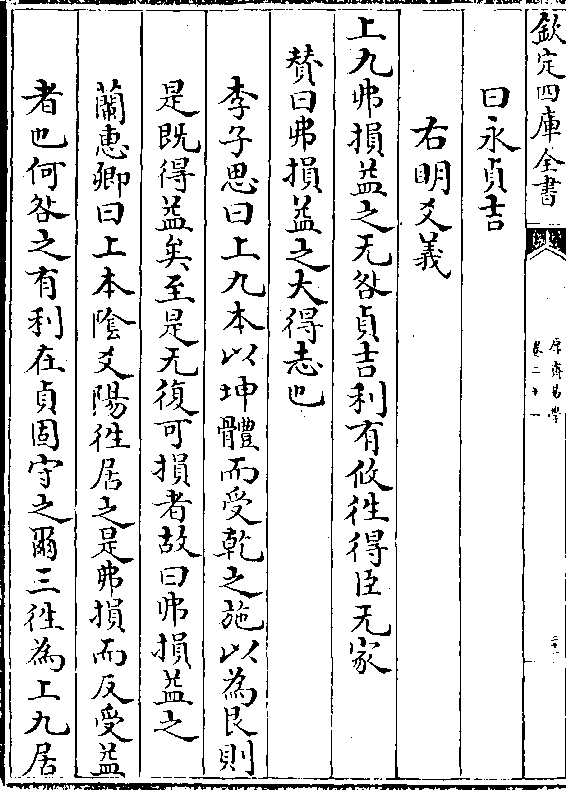 欽定四庫全書
厚齋易學
卷二十一
二十一
曰永貞吉
右明爻義
上九弗損益之无咎貞吉利有攸徃得臣无家
贊曰弗損益之大得志也
李子思曰上九本以坤體而受乾之施以為艮則
是既得益矣至是无復可損者故曰弗損益之
蘭惠卿曰上本陰爻陽徃居之是弗損而反受益
者也何咎之有利在貞固守之爾三徃為上九居